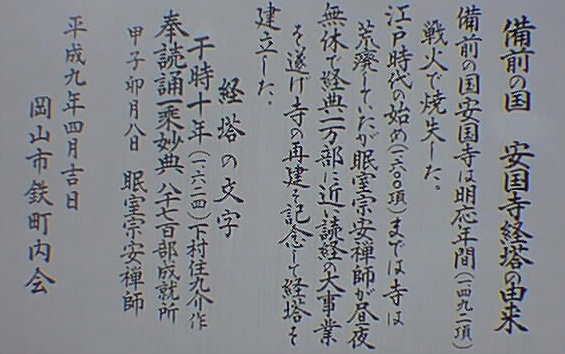 備前の国　安国寺経塔の由来
備前の国安国寺は明応年間（一四九二頃）
戦火で焼失した。
江戸時代の始め（一六〇〇頃）までは寺は
荒廃していたが眠室宗安禅師が昼夜
無休で経典一万部に近い読経の大事業
を遂げ寺の再建を記念して経塔を
建立した。
経塔の文字
干時十年（一六二四）下村住九介作
奉読誦一乗妙典八千七百部成就所
甲子卯月八日　眠室宗安禅師
平成九年四月吉日
岡山市鉄町内会